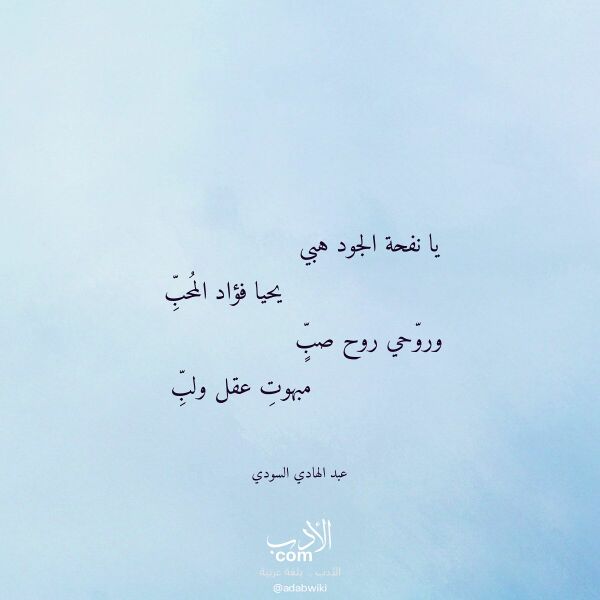 يا نفحة الجود هبي
يحيا فؤاد المُحبِّ
وروّحي روح صبٍّ
مبهوتِ عقل ولبِّ
عبد الهادي السودي
الأدب
com
الأدب .. بلغة عربية
@adabwiki